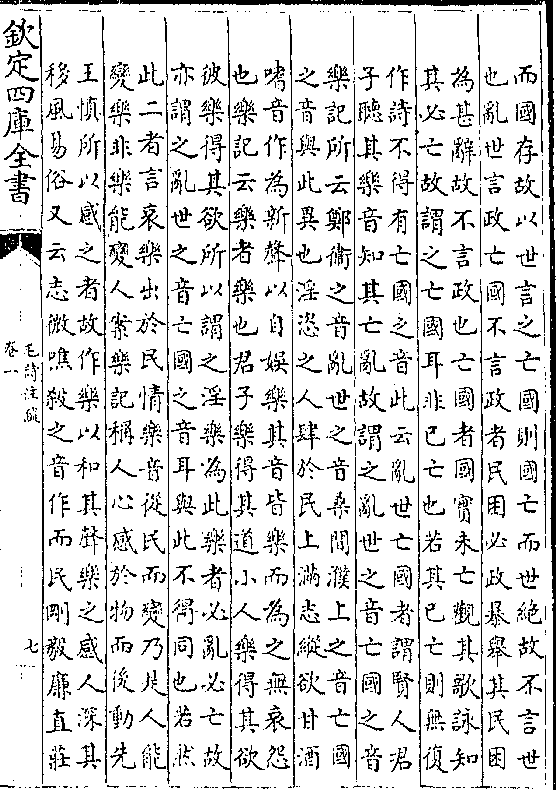 而國存故以世言之亡國則國亡而世絶故不言世
也亂世言政亡國不言政者民困必政暴舉其民困
為甚辭故不言政也亡國者國實未亡觀其歌詠知
其必亡故謂之亡國耳非已亡也若其已亡則無復
作詩不得有亡國之音此云亂世亡國者謂賢人君
子聽其樂音知其亡亂故謂之亂世之音亡國之音
樂記所云鄭衞之音亂世之音桑間濮上之音亡國
之音與此異也淫恣之人肆於民上滿志縱欲甘酒
嗜音作為新聲以自娯樂其音皆樂而為之無哀怨
也樂記云樂者樂也君子樂得其道小人樂得其欲
彼樂得其欲所以謂之淫樂為此樂者必亂必亡故
亦謂之亂世之音亡國之音耳與此不得同也若然
此二者言哀樂出於民情樂音從民而變乃是人能
變樂非樂能變人案樂記稱人心感於物而後動先
王慎所以感之者故作樂以和其聲樂之感人深其
移風易俗又云志微噍殺之音作而民剛毅廉直莊
欽定四庫全書
毛詩注疏
卷一
七